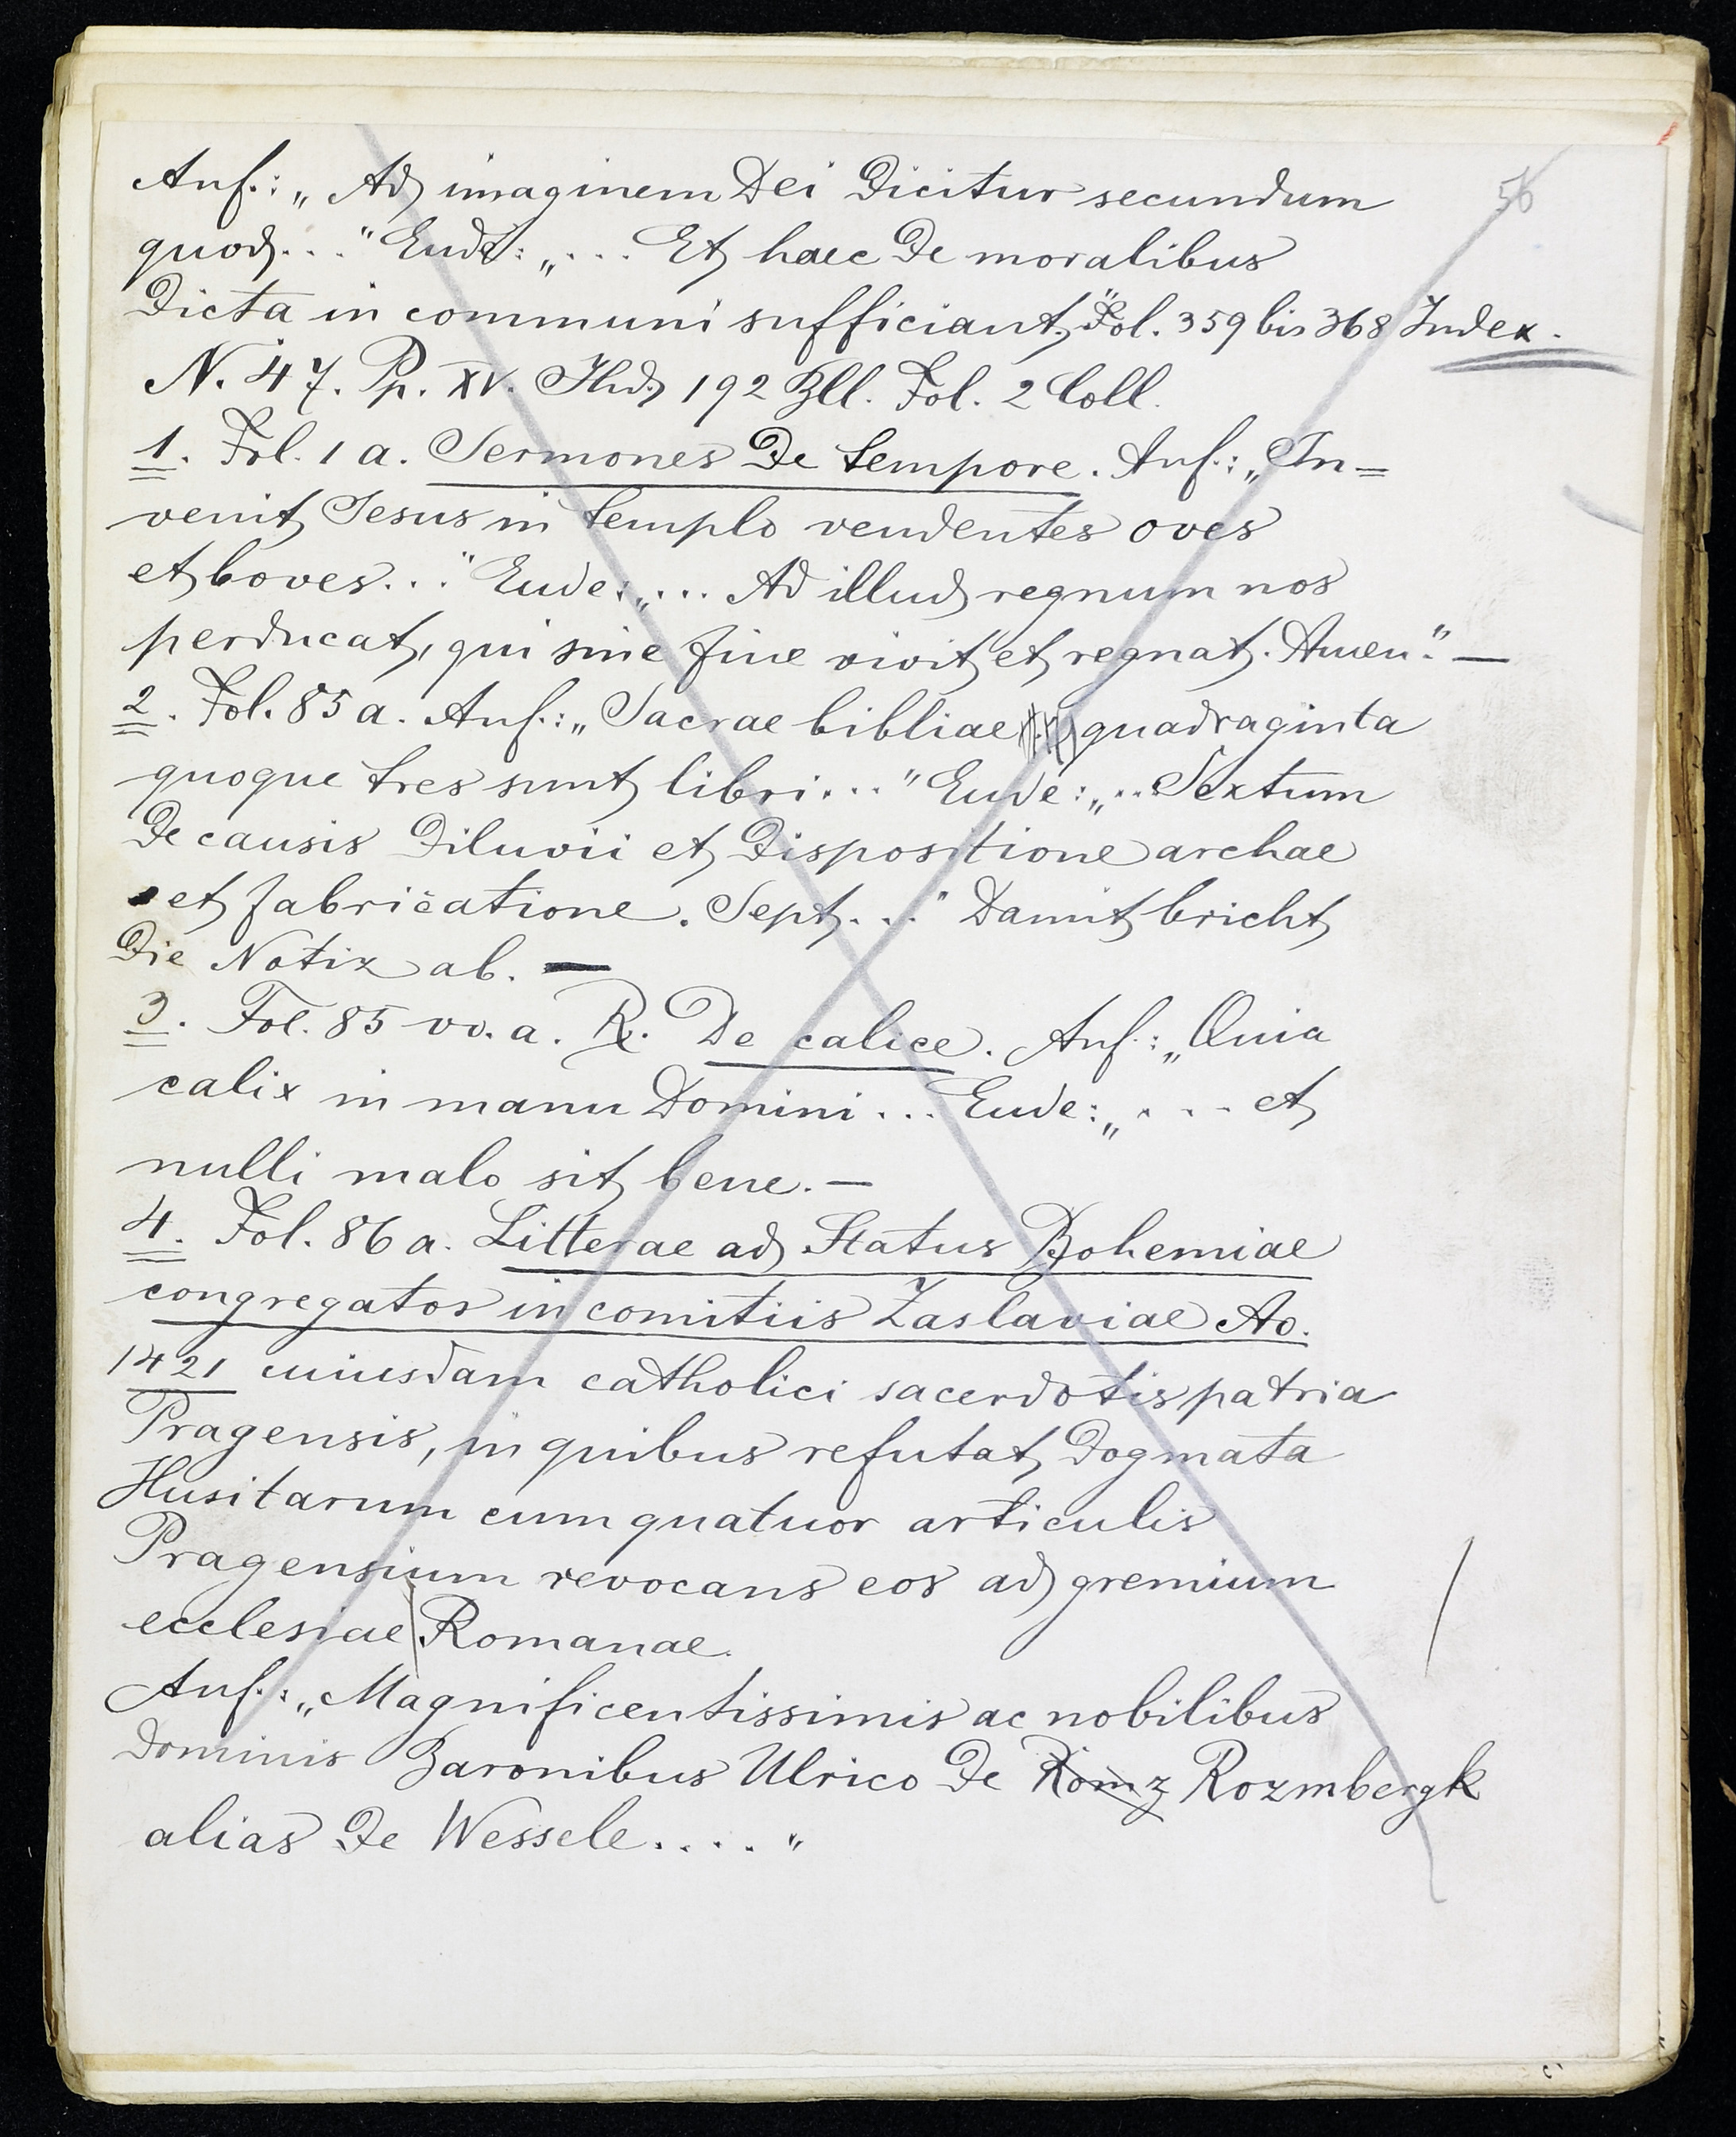 56
Anf.: „Ad imaginem Dei dicitur secundum
quod..." Ende: „... Et haec de moralibus
dicta in communi sufficiant." Fol. 359 bis 368 Index.
N. 47. Pp. XV. Jhd. 192 Bll. Fol. 2 Coll.
1. Fol. 1 a. Sermones de tempore. Anf.: „In=
venit Jesus in templo vendentes oves
et boves..." Ende: „... Ad illud regnum nos
perducat, qui sine fine vivit et regnat. Amen." —
2. Fol. 85 a. Anf.: „Sacrae bibliae quadraginta
quoque tres sunt libri..." Ende: „.. Sextum
de causis diluvii et dispositione archae
et fabricatione. Sept..." Damit bricht
die Notiz ab. —
3. Fol. 85 vo. a. R. De calice. Anf.: „Quia
calix in manu Domini... Ende: „.... et
nulli malo sit bene. —
4. Fol. 86 a. Litterae ad Status Bohemiae
congregatos in comitiis Zaslaviae Ao.
1421 cuiusdam catholici sacerdotis patria
Pragensis, in quibus refutat dogmata
Husitarum cum quatuor articulis
Pragensium revocans eos ad gremium
ecclesiae Romanae.
Anf.: „Magnificentissimis ac nobilibus
dominis Baronibus Ulrico de Romz Rozmbergk
alias de Wessele...."